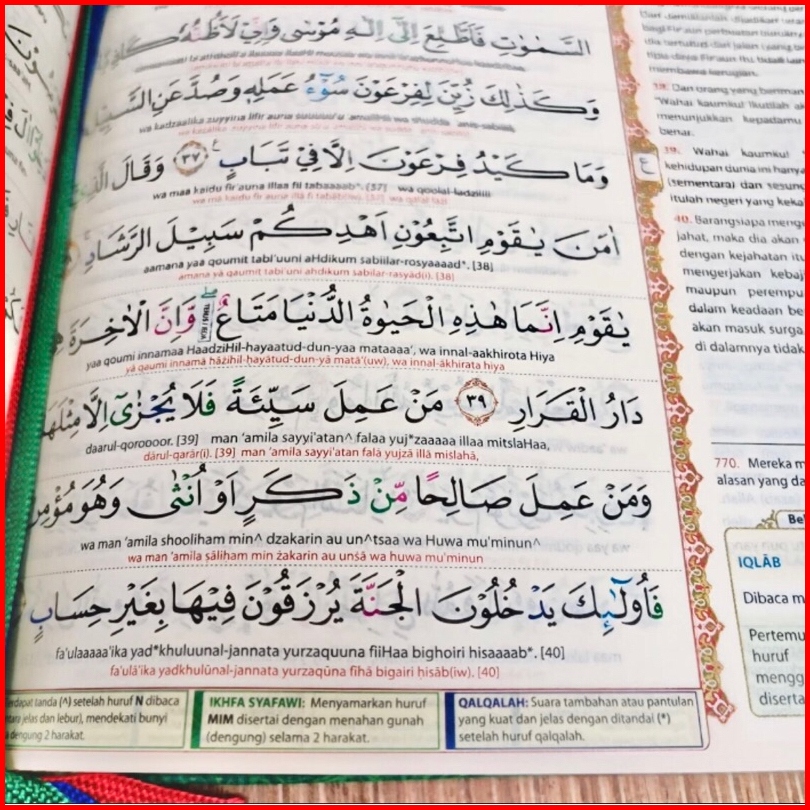 السَّمٰوٰتِ فَاَطَّلِعَ اِلٰٓى اِلٰهِ مُوْسٰى وَاِنِّيْ لَاَظُنُّهٗ
وَكَذٰلِكَ زُيِّنَ لِفِرْعَوْنَ سُوْۤءُ عَمَلِهٖ وَصُدَّ عَنِ
wa kadzaalika zuyyina lifir'auna
وَمَا كَيْدُ فِرْعَوْنَ اِلَّا فِيْ تَبَابٍ ٣٧ وَقَالَ
wa maa kaidu fir'auna illaa fii tabaaaab*. [37] wa qoolal-ladziiii
اٰمَنَ يٰقَوْمِ اتَّبِعُوْنِ اَهْدِكُمْ سَبِيْلَ الرَّشَادِ
aamana yaa qoumit tabi'uuni aHdikum sabiilar-rosyaaaad*. [38]
amana yā qaumit tabi'uni ahdikum sabilar-rasyād(i). [38]
يٰقَوْمِ اِنَّمَا هٰذِهِ الْحَيٰوةُ الدُّنْيَا مَتَاعٌ وَّاِنَّ الْاٰخِرَةَ
yaa qoumi innamaa HaadziHil-hayaatud-dun-yaa mataaaa', wa innal-aakhirota Hiya
yā qaumi innamā hāżihil-hayātud-dun-yā matā'(uw), wa innal-ākhirata hiya
دَارُ الْقَرَارِ ٣٩ مَنْ عَمِلَ سَيِّئَةً فَلَا يُجْزٰٓى اِلَّا مِثْلَهَا
daarul-qoroooor. [39] man 'amila sayyi'atan^ falaa yuj*zaaaaa illaa mitslaHaa,
dārul-qarār(i). [39] man 'amila sayyi'atan falā yujzā illā miṡlahā,
وَمَنْ عَمِلَ صَالِحًا مِّنْ ذَكَرٍ اَوْ اُنْثٰى وَهُوَ مُؤْمِنٌ
wa man 'amila shooliham min^ dzakarin au un^tsaa wa Huwa mu'minun^
wa man 'amila ṣāliham min żakarin au unṡā wa huwa mu'minun
فَاُولٰۤىِٕكَ يَدْخُلُوْنَ الْجَنَّةَ يُرْزَقُوْنَ فِيْهَا بِغَيْرِ حِسَابٍ
fa'ulaaaaa'ika yad*khuluunal-jannata yurzaquuna fiiHaa bighoiri hisaaaab*. [40]
fa'ulā'ika yadkhulūnal-jannata yurzaqūna fīhā bigairi ḥisāb(iw). [40]
tanda (^) setelah huruf N dibaca
jelas dan lebur), mendekati bunyi
dengung 2 harakat.
IKHFA SYAFAWI: Menyamarkan huruf
MIM disertai dengan menahan gunah
(dengung) selama 2 harakat.
QALQALAH: Suara tambahan atau pantulan
yang kuat dan jelas dengan ditandai (*)
setelah huruf qalqalah.
ع
membawa kerugian.
Dan orang yang beriman
"Wahai kaumku! Ikutilah
menunjukkan kepadamu
benar.
39. Wahai kaumku!
kehidupan dunia ini hanya
(sementara) dan
itulah negeri yang
40. Barangsiapa
jahat, maka dia akan
dengan kejahatan
mengerjakan
maupun
dalam keadaan
akan masuk surga
di dalamnya tidak
770. Mereka
alasan yang
IQLĀB
Dibaca
huruf